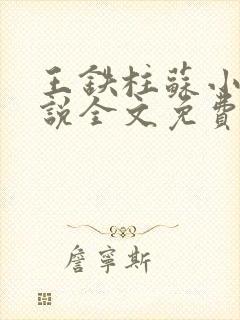 王鉄柱蘇小
說全文免費
詹寧斯